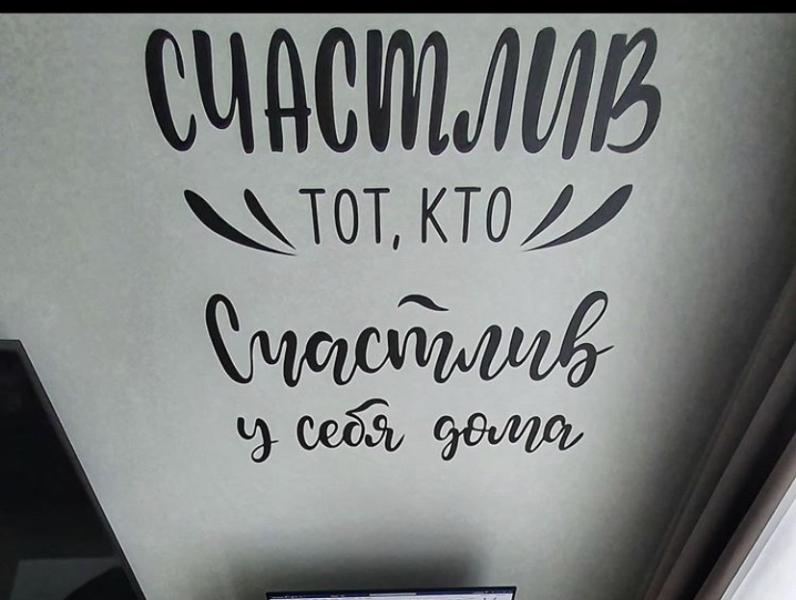 СЧАСТЛИВ
ТОТ, КТО
Счастлив
у себя дома